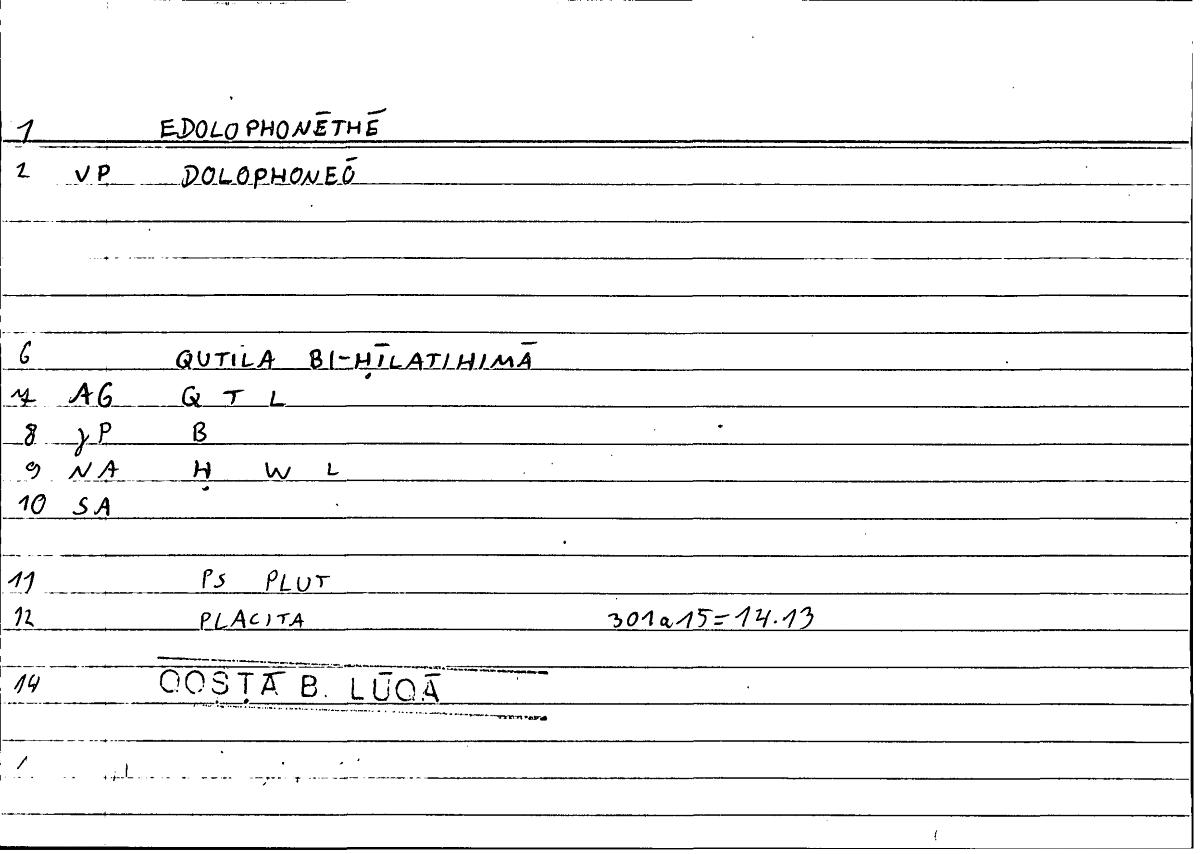 1 EDOLOPHONĒTHĒ
2 VP DOLOPHONEŌ
6 QUTILA BI-ḤĪLATIHIMĀ
7 AG Q T L
8 γP B
9 NA Ḥ W L
10 SA
11 PS PLUT
12 PLACITA 301a15=14.13
14 QOSṬĀ B. LŪQĀ